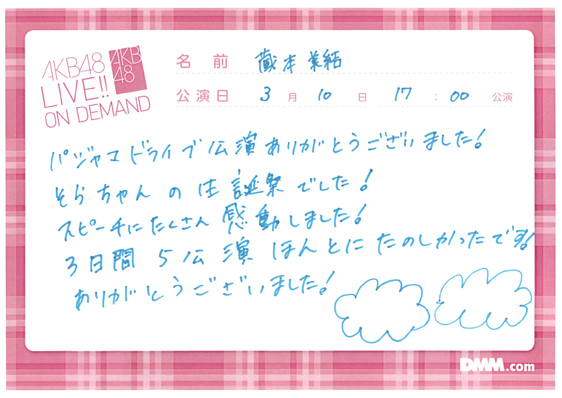 AKB48
LIVE!!
ON DEMAND
AKB
48
名前 蔵本美結
公演日 3月10日 17:00公演
パジャマドライブ公演ありがとうございました!
そらちゃんの生誕祭でした!
スピーチにたくさん感動しました!
3日間5公演ほんとにたのしかったです!
ありがとうございました!
DMM.com